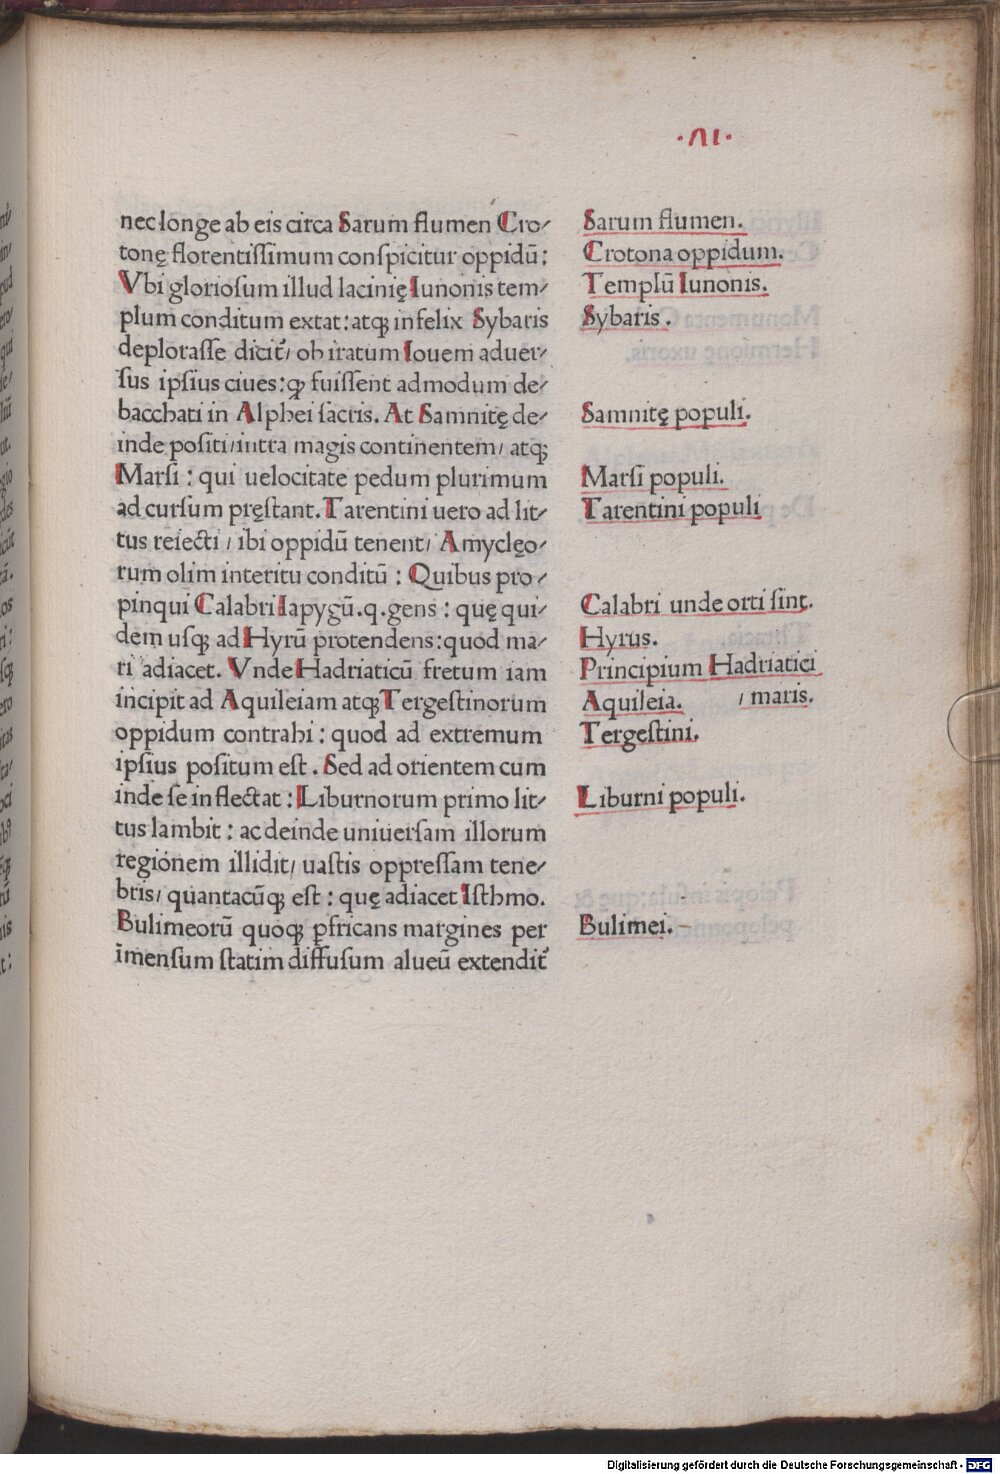 ·VI·
nec longe ab eis circa Sarum flumen Cro/
tonę florentissimum conspicitur oppidū:
Vbi gloriosum illud lacinię Iunonis tem/
plum conditum extat: atqꝫ infelix Sybaris
deplorasse dicit᷑/ ob iratum Iouem aduer/
sus ipsius ciues: ꝙ fuissent admodum de/
bacchati in Alphei sacris. At Samnitę de/
inde positi/intra magis continentem/ atqꝫ
Marsi : qui uelocitate pedum plurimum
ad cursum pręstant. Tarentini uero ad lit/
tus reiecti / ibi oppidū tenent/ Amyclęo/
rum olim interitu conditū : Quibus pro/
pinqui Calabri Iapygū.q.gens : quę qui/
dem usqꝫ ad Hyrū protendens: quod ma/
ri adiacet. Vnde Hadriaticū fretum iam
incipit ad Aquileiam atqꝫ Tergestinorum
oppidum contrahi : quod ad extremum
ipsius positum est . Sed ad orientem cum
inde se inflectat : Liburnorum primo lit/
tus lambit : ac deinde uniuersam illorum
regionem illidit/ uastis oppressam tene/
bris/ quantacūqꝫ est : quę adiacet Isthmo.
Bulimeorū quoqꝫ ꝑfricans margines per
īmensum statim diffusum alueū extendit᷑
Sarum flumen.
Crotona oppidum.
Templū Iunonis.
Sybaris .
Samnitę populi.
Marsi populi.
Tarentini populi
Calabri unde orti sint.
Hyrus.
Principium Hadriatici
Aquileia. / maris.
Tergestini.
Liburni populi.
Bulimei.
Digitalisierung gefördert durch die Deutsche Forschungsgemeinschaft - DFG